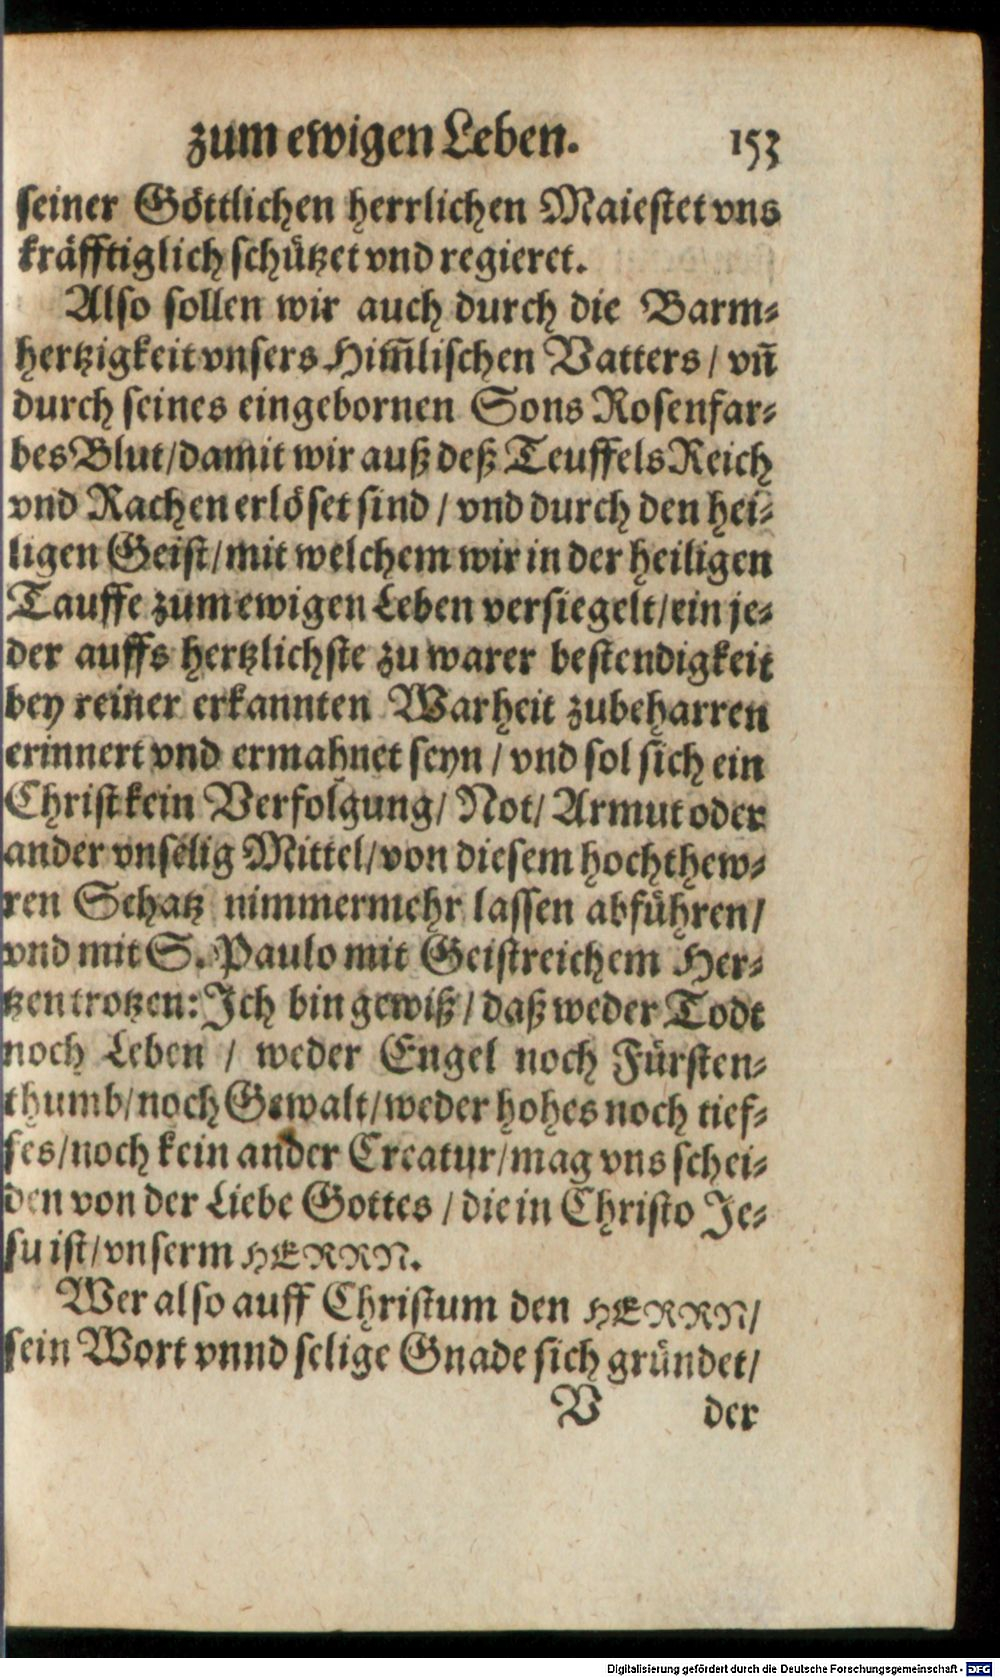 zum ewigen Leben. 153
seiner Göttlichen herrlichen Maiestet vns
kräfftiglich schützet vnd regieret.
Also sollen wir auch durch die Barm-
hertzigkeit vnsers Him̄lischen Vatters / vn̄
durch seines eingebornen Sons Rosenfar-
bes Blut/damit wir auß deß Teuffels Reich
vnd Rachen erlöset sind / vnd durch den hei-
ligen Geist/mit welchem wir in der heiligen
Tauffe zum ewigen Leben versiegelt/ein je-
der auffs hertzlichste zu warer bestendigkeit
bey reiner erkannten Warheit zubeharren
erinnert vnd ermahnet seyn / vnd sol sich ein
Christ kein Verfolgung/ Not/ Armut oder
ander vnselig Mittel/von diesem hochthew-
ren Schatz nimmermehr lassen abführen/
vnd mit S. Paulo mit Geistreichem Her-
tzen trotzen: Ich bin gewiß / daß weder Todt
noch Leben / weder Engel noch Fürsten-
thumb/noch Gewalt/weder hohes noch tief-
fes/noch kein ander Creatur/mag vns schei-
den von der Liebe Gottes / die in Christo Je-
su ist/vnserm HERRN.
Wer also auff Christum den HERRN/
sein Wort vnnd selige Gnade sich gründet/
V der
Digitalisierung gefördert durch die Deutsche Forschungsgemeinschaft - DFG